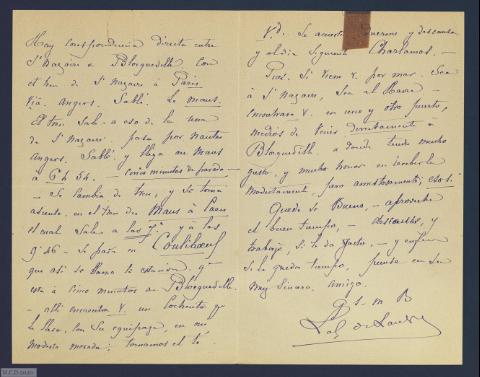 Hay correspondencia directa entre
St Nazaire & Blosguedille con
el tren de St Nazaire à Paris
via Angers. Sablé. Le Mans.
El tren sale a eso de la una
de St Nazaire pasa por Nantes
Angers. Sablé y llega au Mans
à 6 h 54. cinco minutos de parada –
– Se cambia de tren, y se toma
asiento en el tren du Mans à Caen
el cual sale a las 7 y à las
9 36 – Se para en
que asi se llama la estación q
está à cinco minutos de Blosguedille
– alli encuentra V. un cochecito q
le lleva, con su equipage, en mi
modesta morada; tomamos el té.
Vd. se acuesta, duerme y descansa
y al dia siguiente charlamos. –
Pero. Si viene V. por mar. Sea
à St Nazaire, sea al Havre –
encontrará V. en uno y otro puerto,
medios de venir derechamente à
Blosguedille a donde tendré mucho
gusto, y mucho honor en recibirle
modestamente, pero amistosamente,
Quede So Bueno, – aproveche
el buen tiempo, – descanse, y
trabaje, si le da gusto, – y
Si le queda tiempo, piense en su
muy sincero amigo.
q. s. m. B